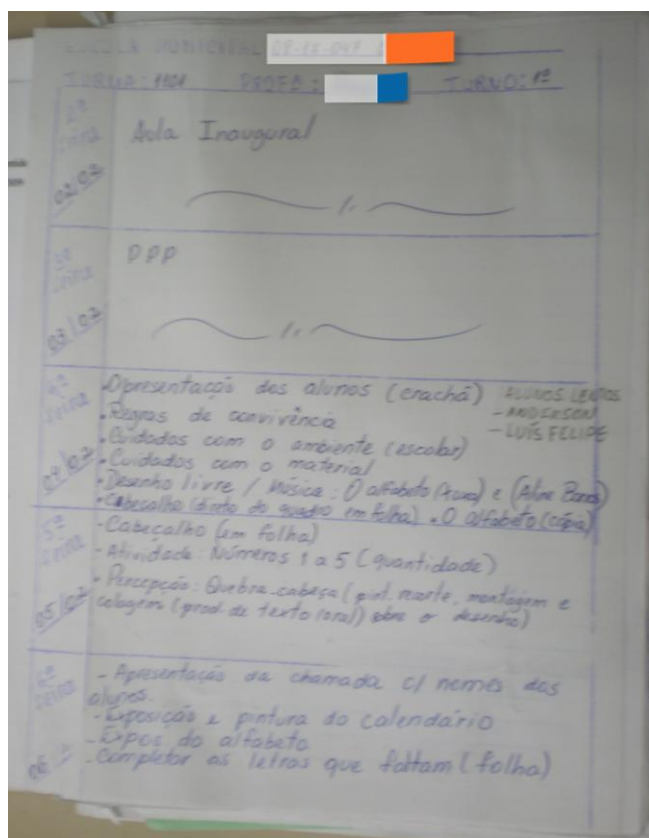 ESCOLA MUNICIPAL 09-18-047
TURMA: 1101 PROFª: TURNO: 1º
2ª
feira
02/02
Aula Inaugural
3ª
feira
03/02
DPP
4ª
feira
04/02
• Apresentação dos alunos (crachá)
• Regras de convivência
• Cuidados com o ambiente (escolar)
• Cuidados com o material
• Desenho livre / Música: O alfabeto (Xuxa) e (Aline Barros)
• Cabeçalho (direto do quadro em folha) • O alfabeto (cópia)
ALUNOS LENTOS
- ANDERSON
- LUÍS FELIPE
5ª
feira
05/02
- Cabeçalho (em folha)
- Atividade: Números 1 a 5 (quantidade)
• Percepção: Quebra-cabeça (pint. recorte, montagem e
colagem (prod. de texto (oral) sobre o desenho)
6ª
feira
06
- Apresentação da chamada c/ nomes dos
alunos.
- Exposição e pintura do calendário
- Expos do alfabeto
- Completar as letras que faltam (folha)